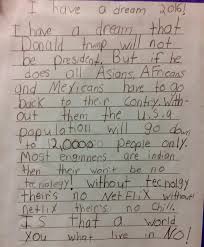 I have a dream 2016!
I have a dream that
Donald trump will not
be president, But if he
does all Asians, Africans
and Mexicans have to go
back to their contry. With-
out them the U.S.a
population will go down
to 12,0000 people only.
Most engnners are indian
then their won't be no
tecnology! without tecnology
their's no NetFLiX without
netflix their's no chill.
Is that a world
You what live in NO!